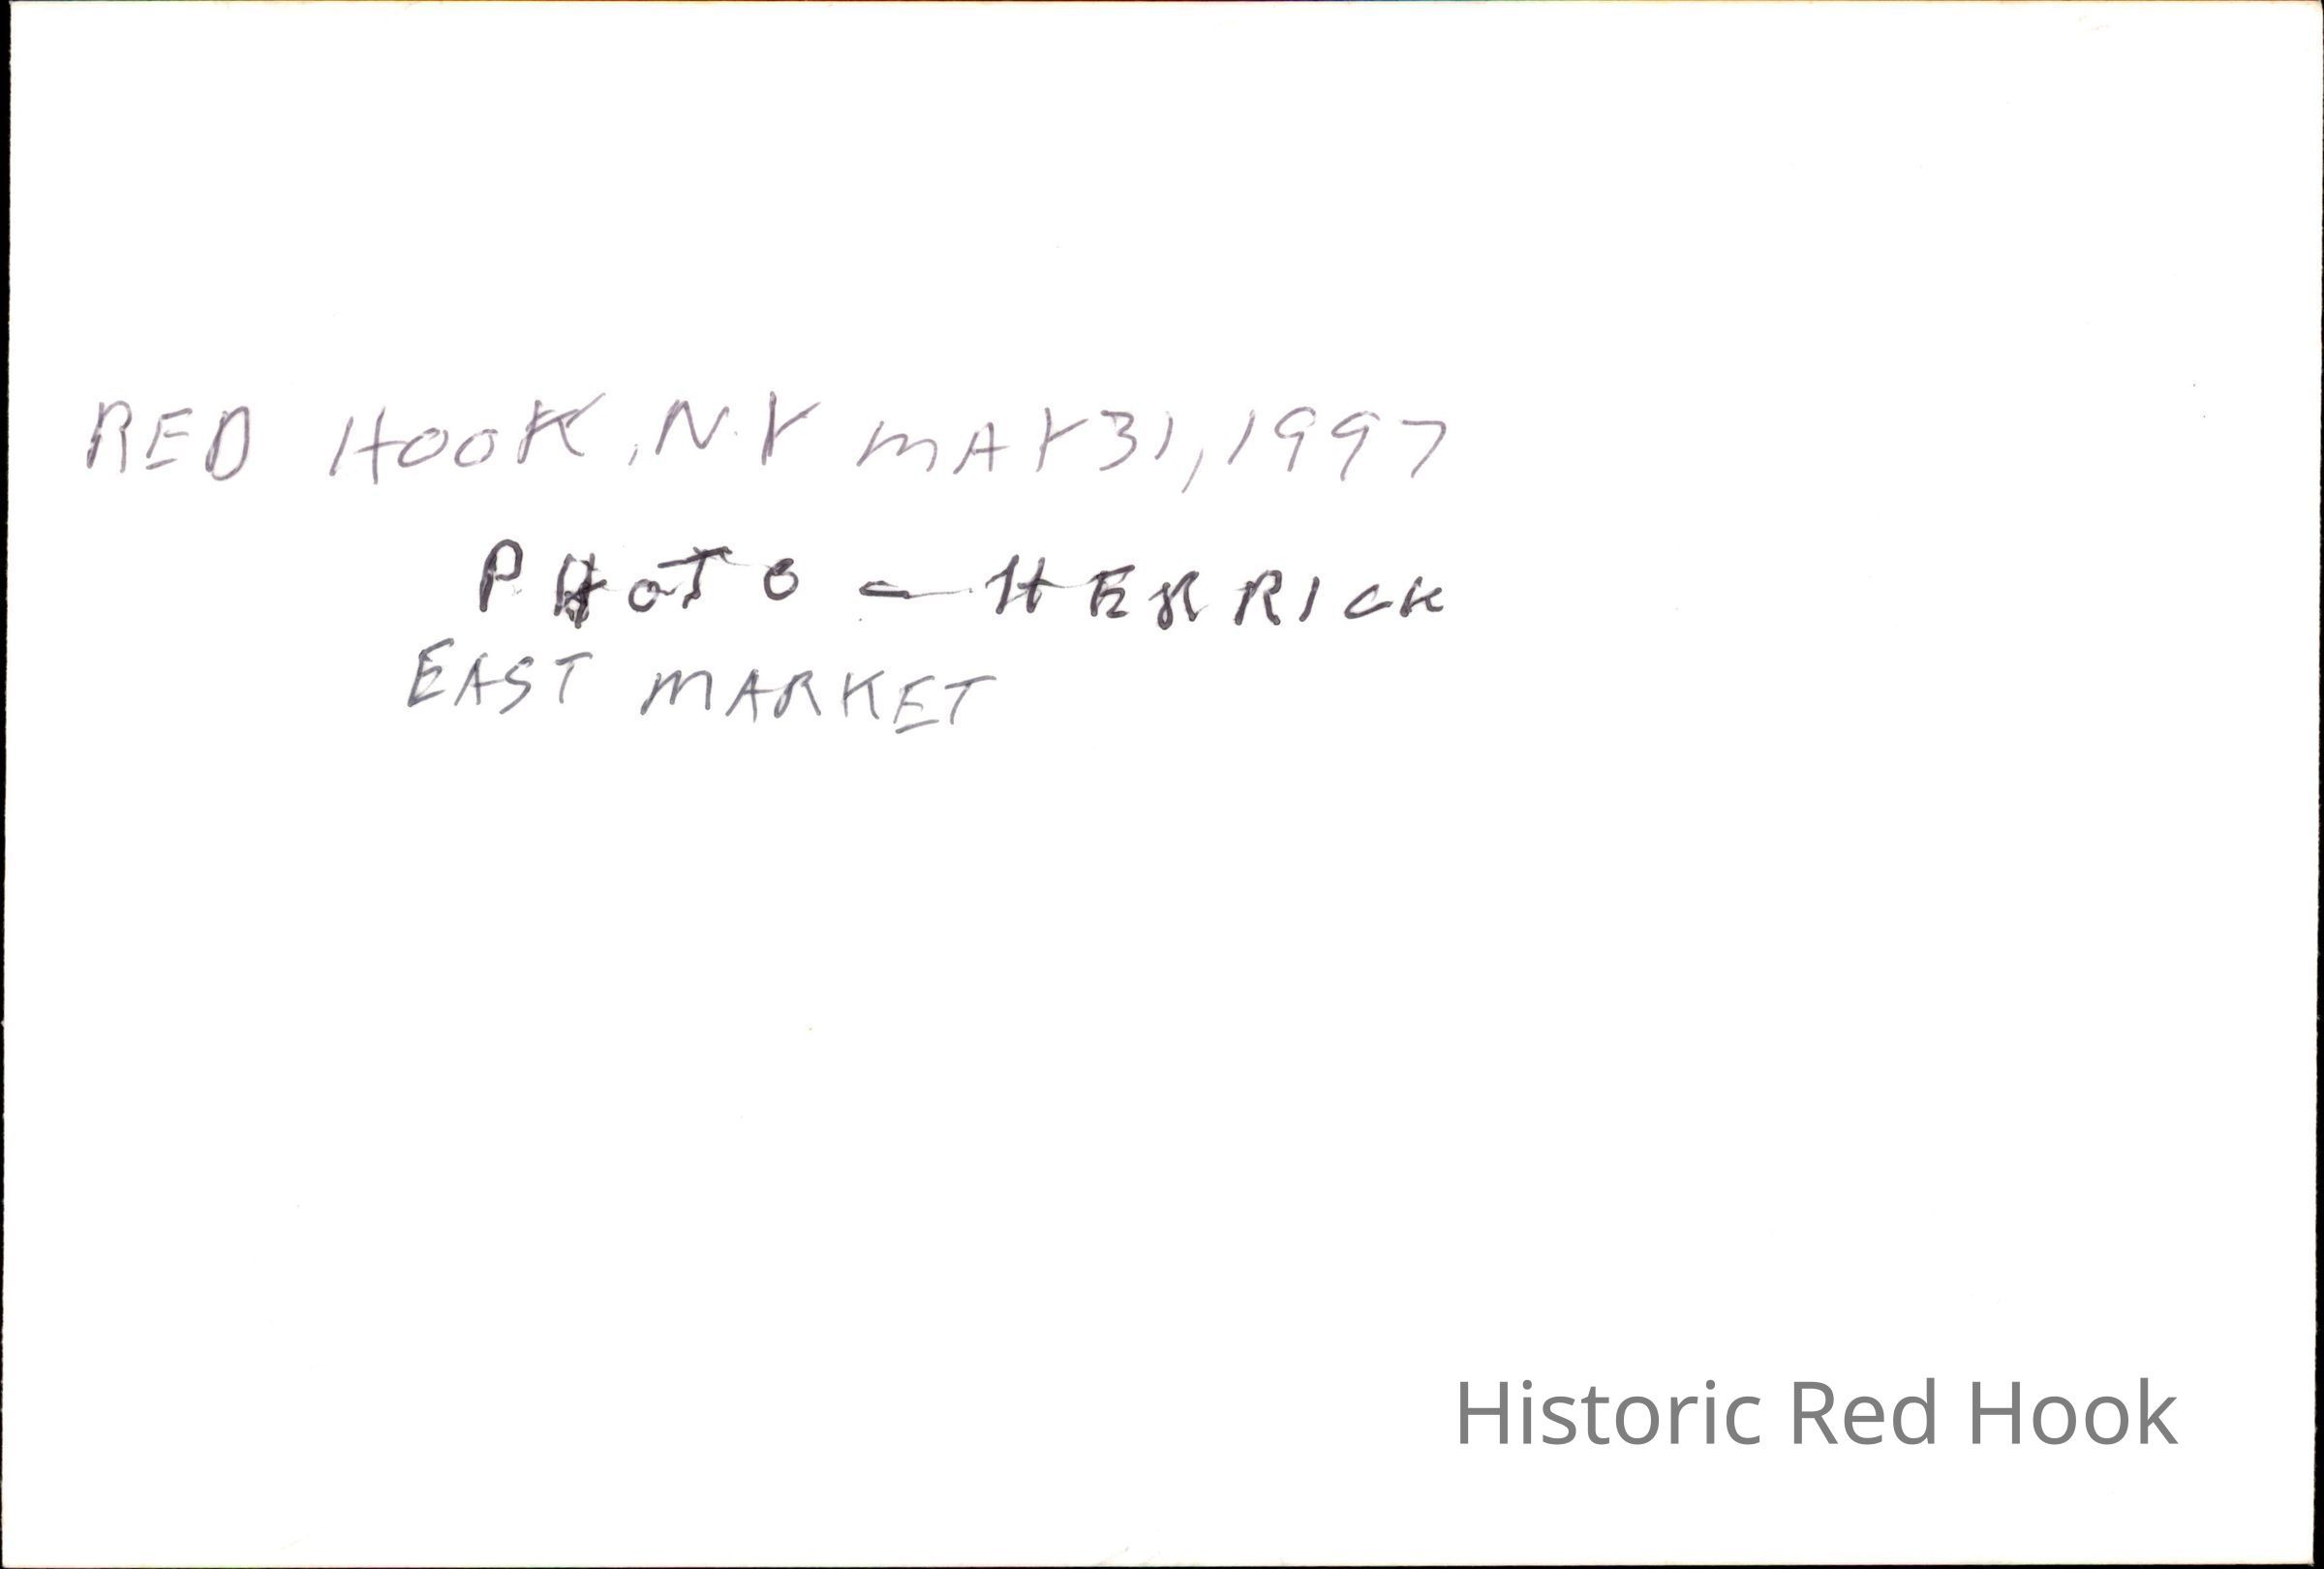 RED HOOK, N.Y MAY 31, 1997
PHOTO - HERRICK
EAST MARKET
Historic Red Hook